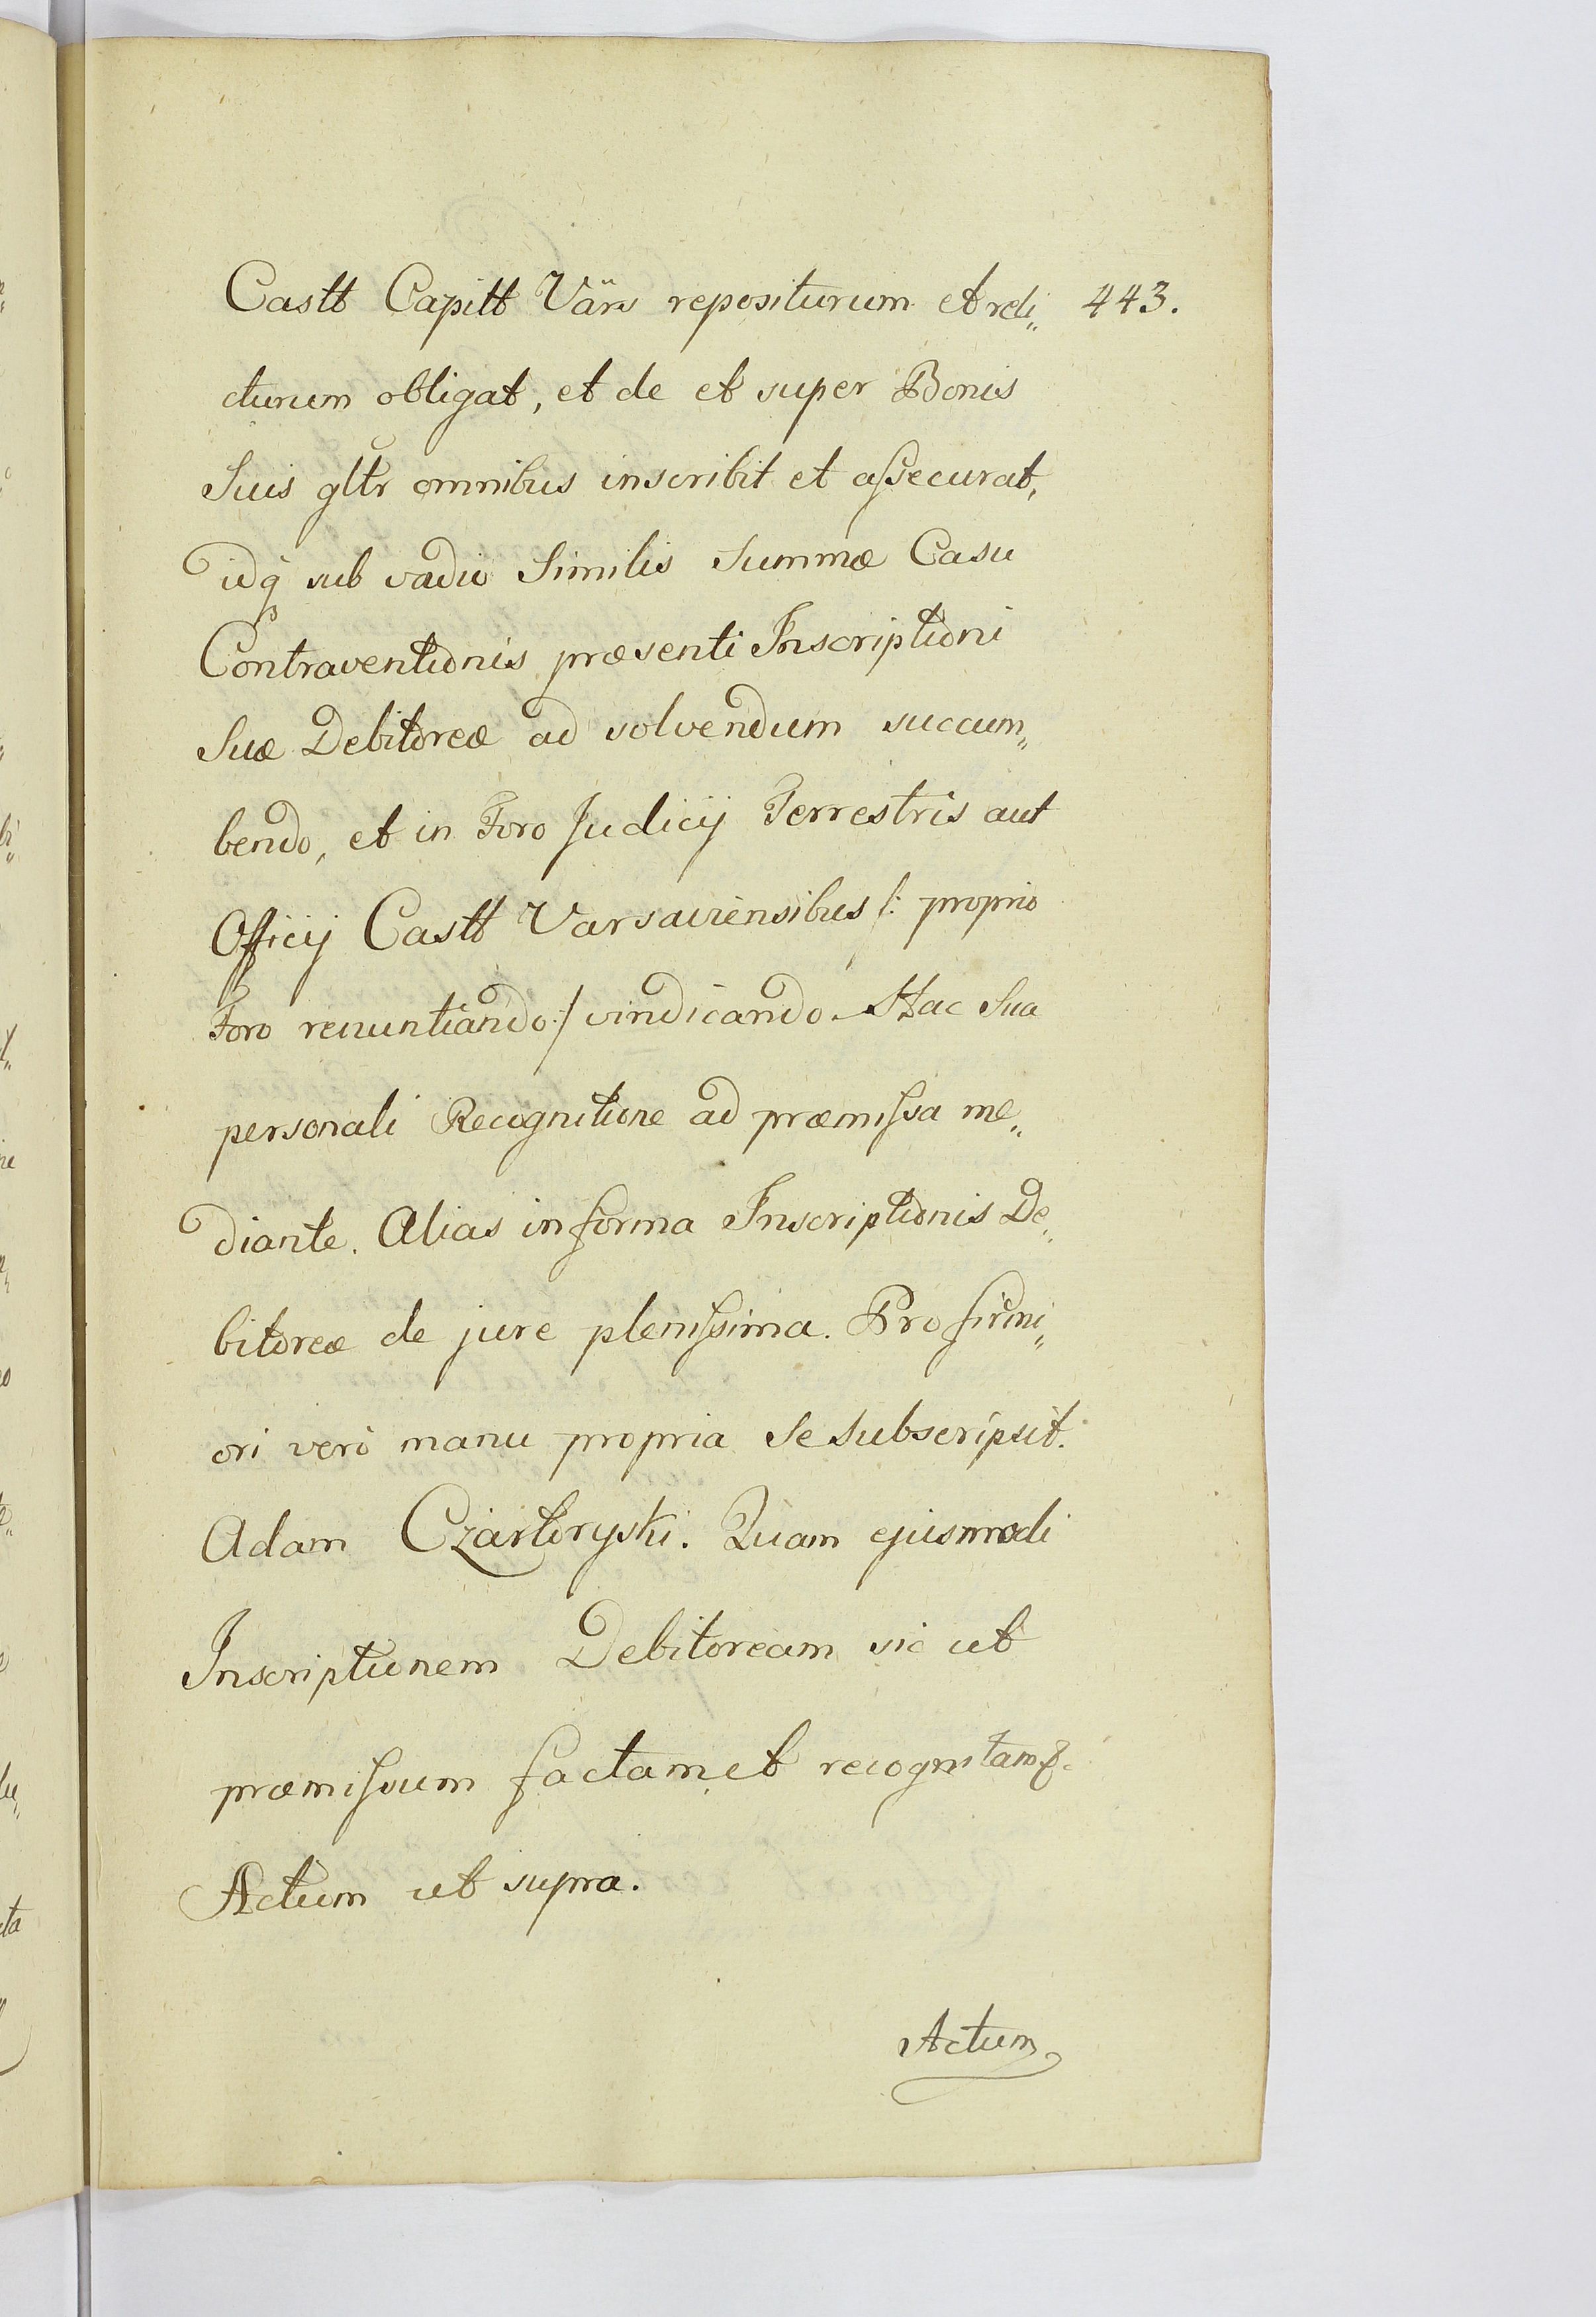 Castt Capitt Värs repositurum et reli„ 443.
cturum obligat, et de et super Bonis
Suis gltr omnibus inscribit et assecurat,
idq sub vadio Similis Summæ Casu
Contraventionis præsenti Inscriptioni
Suæ Debitoreæ ad solvendum succum„
bendo, et in Foro Judicij Terrestris aut
Officij Castt Varsaviensibus /: proprio
Foro renuntiando :/ vindicando. Hac Sua
personali Recognitione ad præmissa me„
diante. Alias in forma Inscriptionis De„
bitoreæ de jure plenissima. Pro firmi„
ori verò manu propria Se Subscripsit.
Adam Czartoryski. Quam ejusmodi
Inscriptionem Debitoream sic ut
præmissum factam et recognitam
Actum ut supra.
Actum